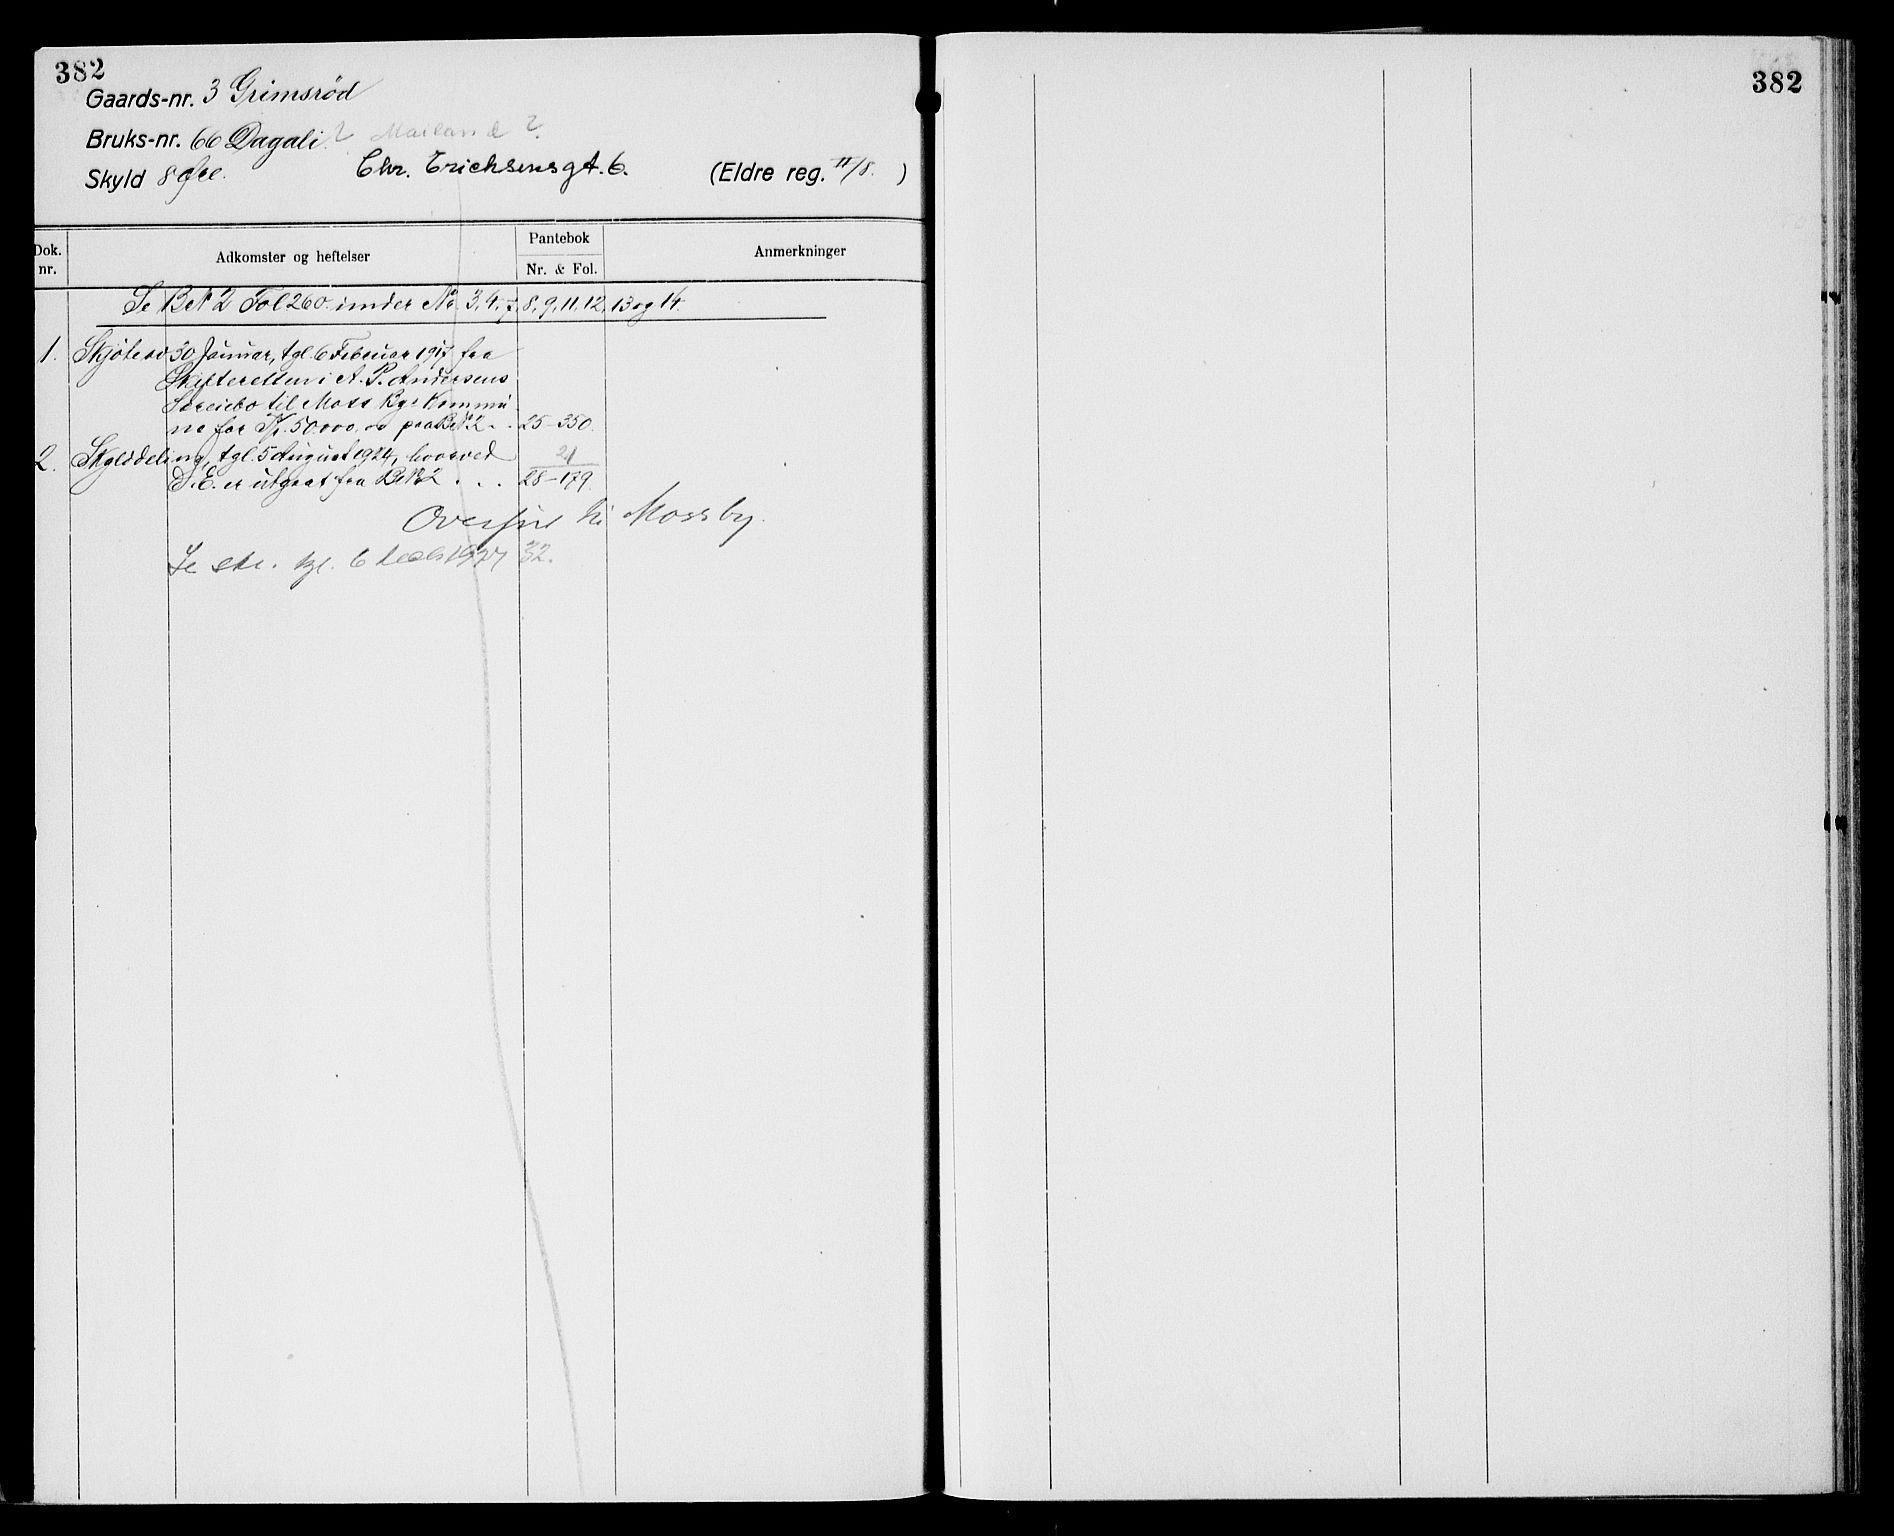 382
382
Gaards-nr. 3 Grimsröd
Bruks-nr. 66 Dagali ? Mailand ?
Skyld 8 Øre. Chr. Erichsensgt. 6. (Eldre reg. II/8. )
Dok. nr.
Adkomster og heftelser
Pantebok
Nr. & Fol.
Anmerkninger
Se B.N. 2 Fol 260 under No. 3, 4, 7, 8, 9, 11, 12, 13 og 14.
1. Skjöte av 30 Januar, tgl. 6 Februar 1917 fra
Skifteretten i A. P. Andersens
til Moss Bys Kommu
ne for Kr. 50.000, paa B.N. 2 . . 25-350.
2. Skylddeling, tgl. 5 August 1924, hvorved 21
D.E. er utgaat fra B.N. 2 . . . 28-179.
Overfört til Moss by.
Se tgl. 6 1927 32.